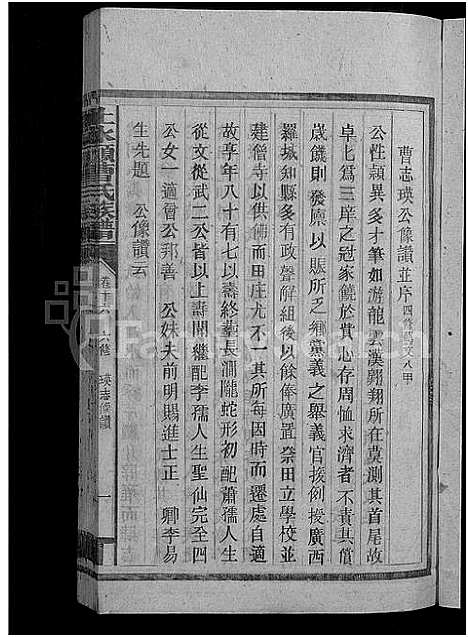 曹志瑛公像讚並序
公性頴異多才筆如游龍雲漢翺翔所在莫測其首尾故
卓七爲三岸之冠家饒於貲心存周恤求濟者不責其償
歲饑則發廪以賑所乏鄉黨義之舉義官援例授廣西
羅城知縣多有政聲解組後以餘俸廣置祭田立學校並
建僧寺以供佛而田庄尤不一其所每因時而遷處自適
故享年八十有七以壽終葬長澗隴蛇形初配蕭孺人生
從文從武二公皆以上壽聞繼配李孺人生聖仙完全四
公女一適曾公邦善 公妹夫前明賜進士正 卿李易
生先題 公像讚云
曹氏族譜
瑛志像讚
一